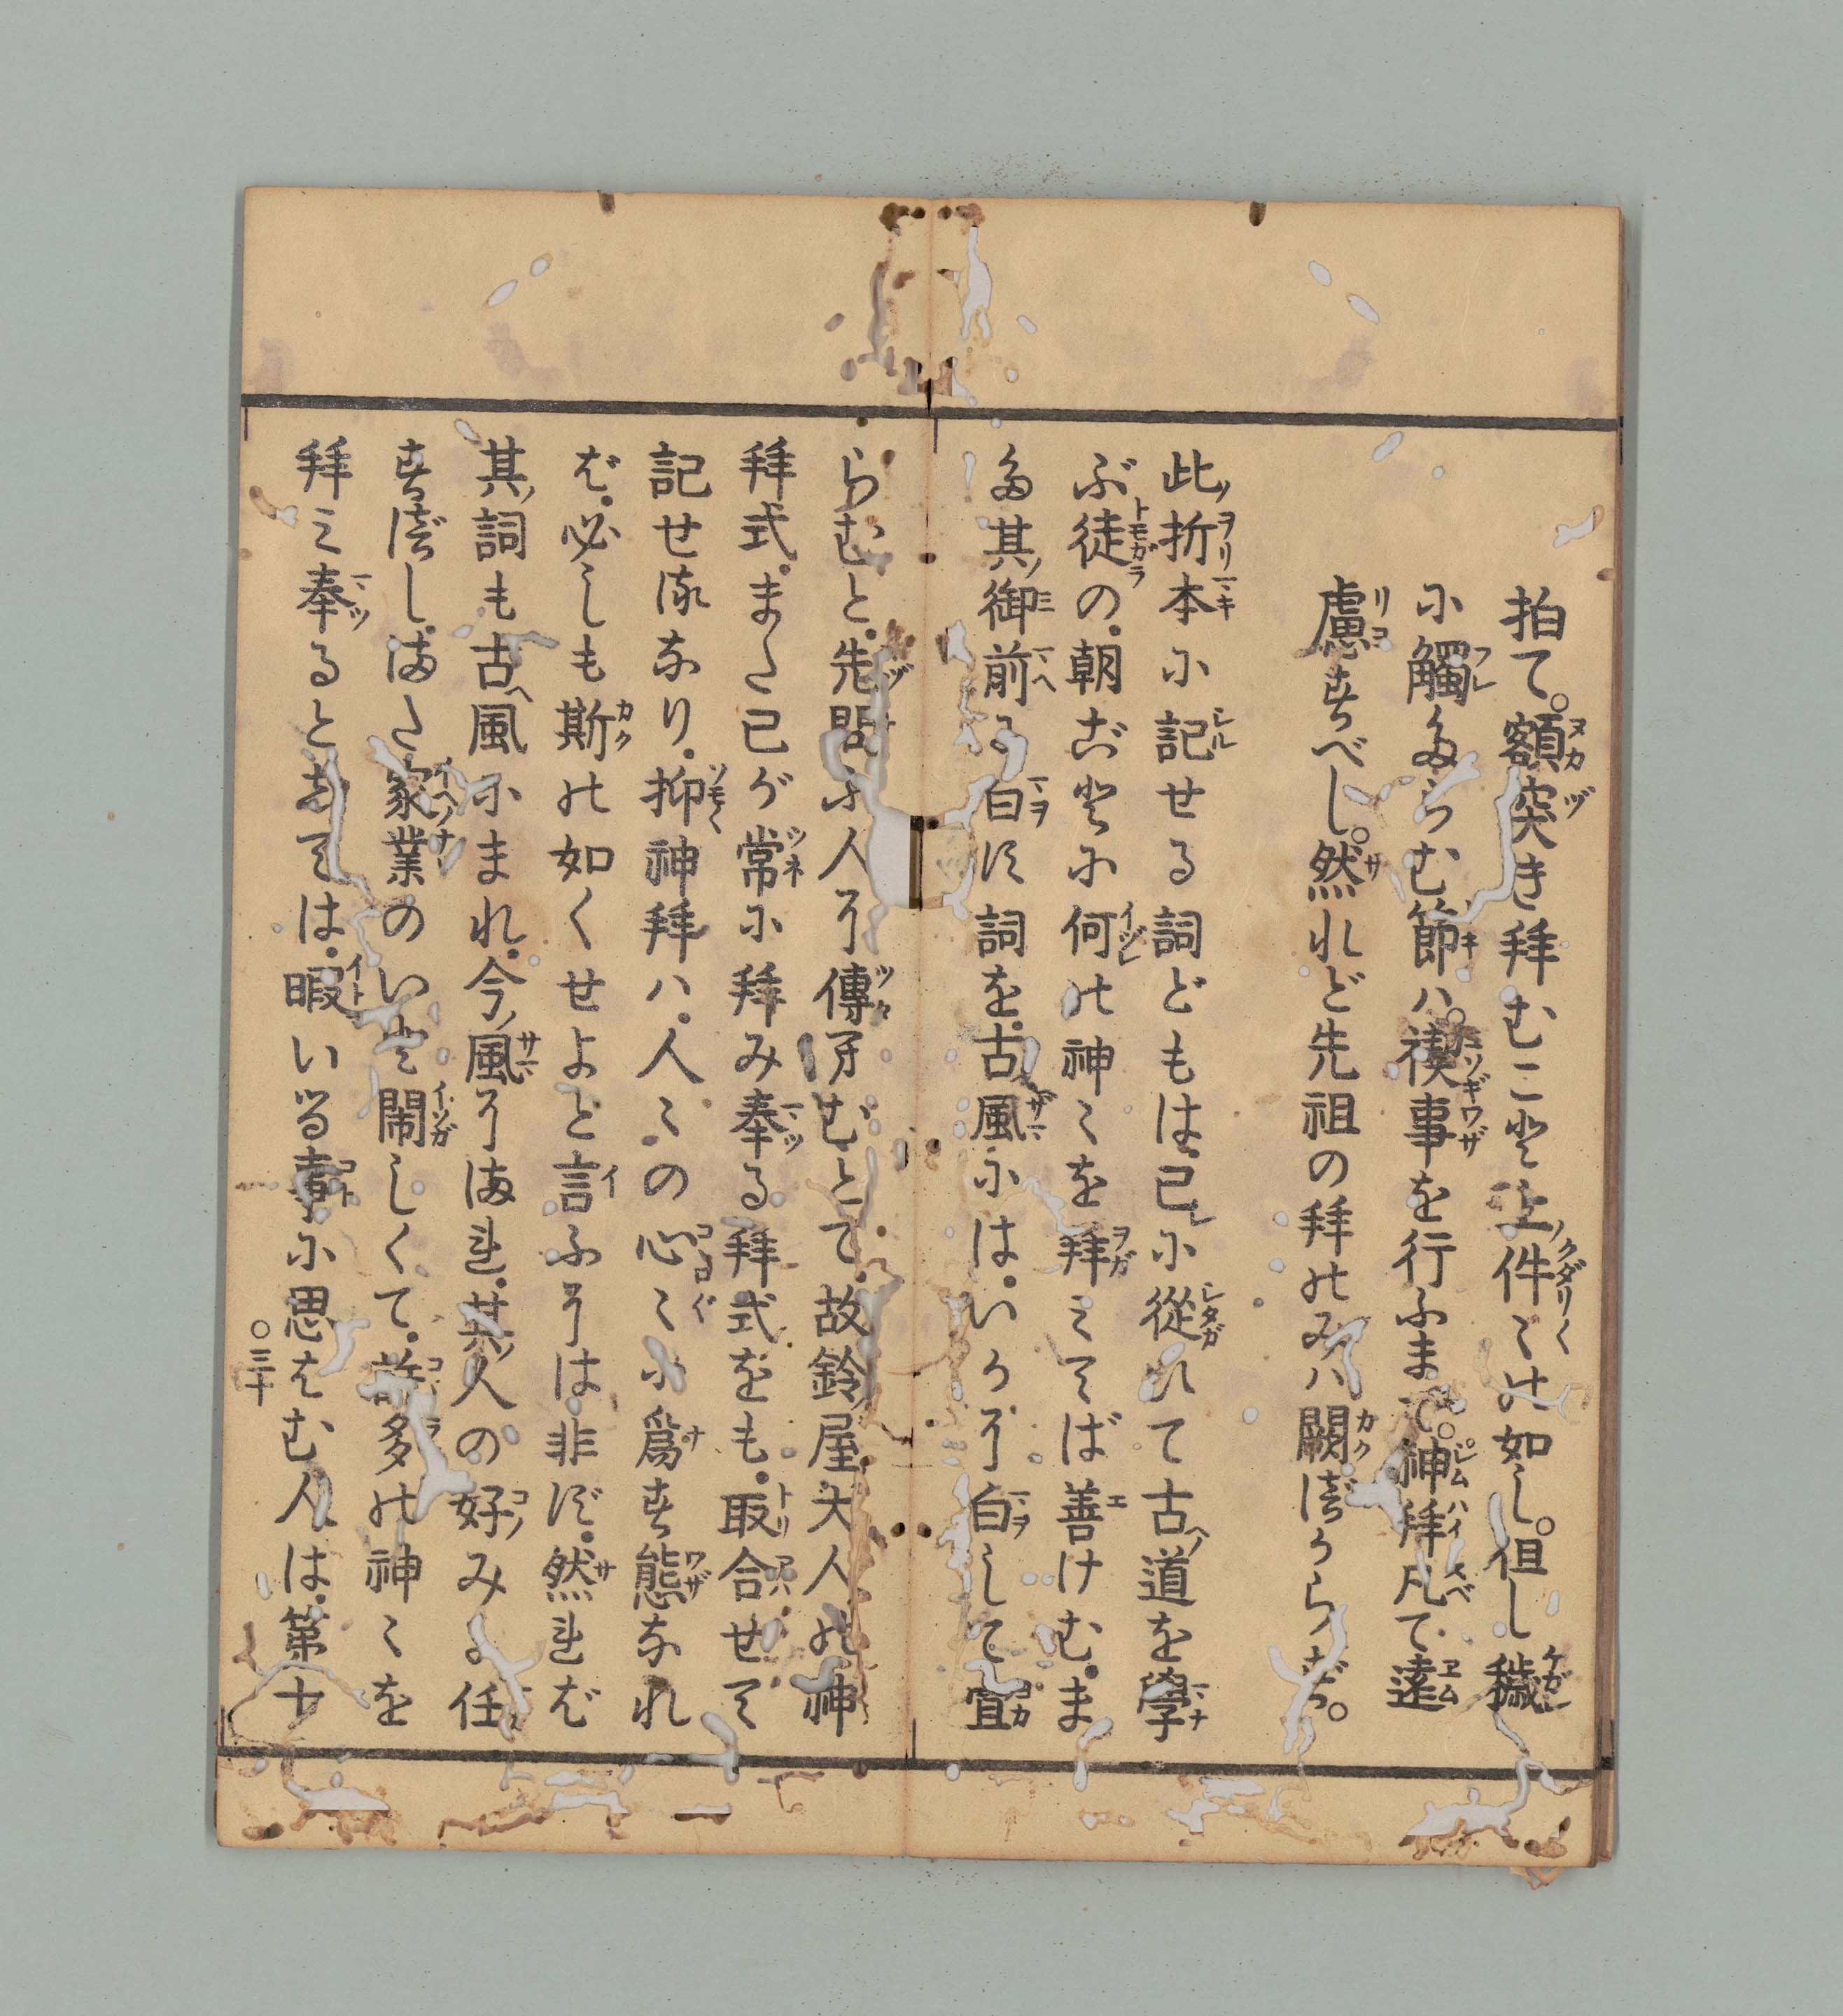 拍て。額突き拝むこと上ノ件々の如し。但し穢
に觸たらむ節ハ。禊事を行ふまで。神拜凡て遠
慮すべし。然れど先祖の拜のみハ闕べからず。
此ノ折本に記せる詞どもは。己レに從ひて古ヘノ道を學
ぶ徒の。朝ごとに何の神々を拜みてば善けむ。ま
た其ノ御前に白す詞を。古ヘ風には。いかに白して宜
らむと。先ヅ問ふ人に傳ふずとて。故鈴屋ノ大人の神
拜式。また己が常に拜み奉る拜式をも。取合せて
記せるなり。抑神拜ハ。人々の心々に爲す態なれ
ば。必しも斯の如くせよと言ふには非ず。然れば
其ノ詞も古ヘ風にまれ。今ノ風にまれ。其ノ人の好みに任
すべし。また家業のいと閙しくて。許多の神々を
拜み奉ると爲ては。暇いる事に思はむ人は。第十
○三十